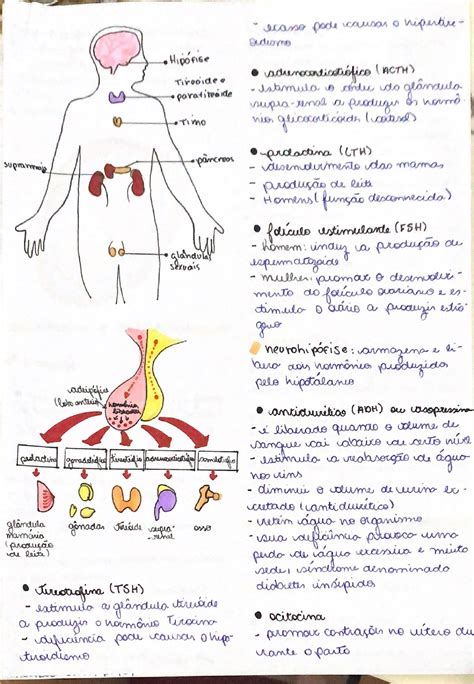 Hipófise
Tireóide e
paratireóide
Timo
suprarrenais
pâncreas
glândulas
sexuais
adeipófise
(lobo anterior)
hormônios
prolactina
gonadotrófico
tireotrófico
adrenocorticotrófico
somatotrófico
glândula
mamária
(produção
de leite)
gônadas
tireóide
supra-
renal
osso
• tireotrofina (TSH)
- estimula a glândula tireóide
a produzir o hormônio Tiroxina
- deficiência pode causar o hipo-
tireoidismo
- excesso pode causar o hipertire-
oidismo
• adrenocorticotrófico (ACTH)
- estimula o córtex da glândula
supra-renal a produzir os hormô-
nios glicocorticoides (cortisol)
• prolactina (LTH)
- desenvolvimento das mamas
- produção de leite
- Homens (função desconhecida)
• folículo estimulante (FSH)
- homem: induz a produção de
espermatozoide
- mulher: promove o desenvolvi-
mento do folículo ovariano e es-
timula o ovário a produzir estró-
geno
neurohipófise: armazena e li-
bera os hormônios produzidos
pelo hipotálamo
• antidiurético (ADH) ou vasopressina
- é liberado quando o volume de
sangue cai abaixo de certo nível
- estimula a reabsorção de água
nos rins
- diminui o volume de urina ex-
cretado (antidiurético)
- retém água no organismo
- sua deficiência provoca uma
perda de água excessiva e muita
sede, síndrome denominada
diabetes insípidos
• ocitocina
- promove contrações no útero du-
rante o parto